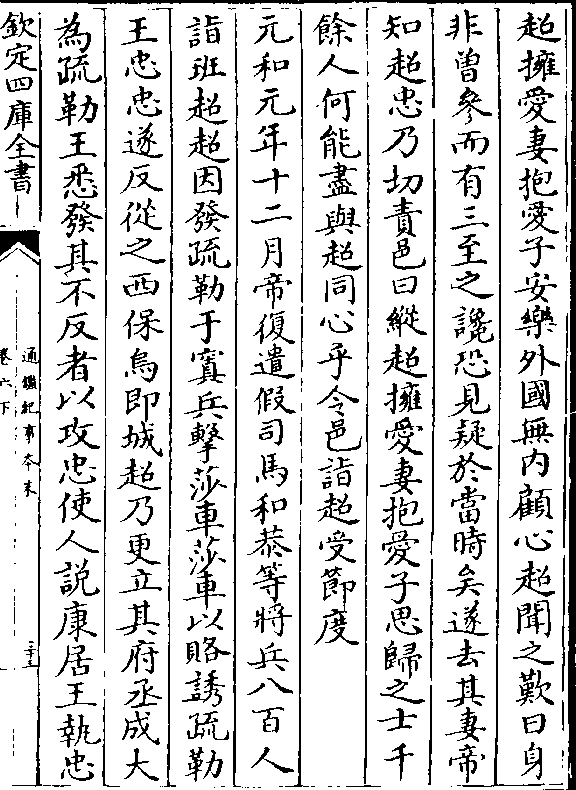 超擁愛妻抱愛子安樂外國無内顧心超聞之歎曰身
非曾參而有三至之讒恐見疑於當時矣遂去其妻帝
知超忠乃切責邑曰縱超擁愛妻抱愛子思歸之士千
餘人何能盡與超同心乎令邑詣超受節度
元和元年十二月帝復遣假司馬和恭等將兵八百人
詣班超超因發疏勒于窴兵擊莎車莎車以賂誘疏勒
王忠忠遂反從之西保烏即城超乃更立其府丞成大
為疏勒王悉發其不反者以攻忠使人説康居王執忠
欽定四庫全書
通鑑紀事本末
卷六下
三十三